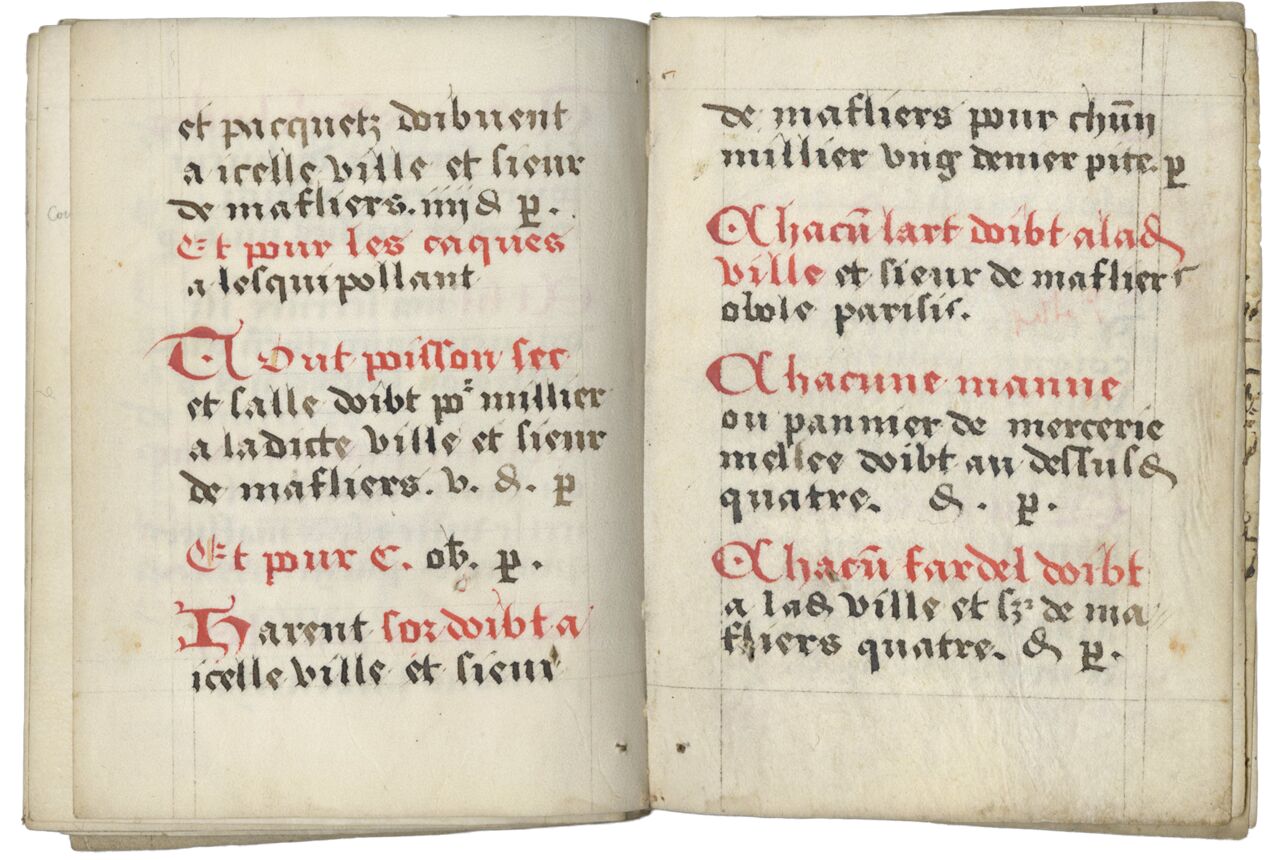 et pacquetz doibuent
a icelle ville et sieur
de mafliers. iiij d p.
Et pour les caques
a lesquipollant
Tout poisson sec
et salle doibt po^r millier
a ladicte ville et sieur
de mafliers. v. d. p
Et pour C. ob. p.
Harent sor doibt a
icelle ville et sieur
de mafliers pour chūn
millier vng denier pite. p
Chacū lart doibt a lad
ville et sieur de mafliers
obole parisis.
Chacune manne
ou pannier de mercerie
mellee doibt au dessusd
quatre. d. p.
Chacū fardel doibt
a lad ville et sr de ma
fliers quatre. d p.